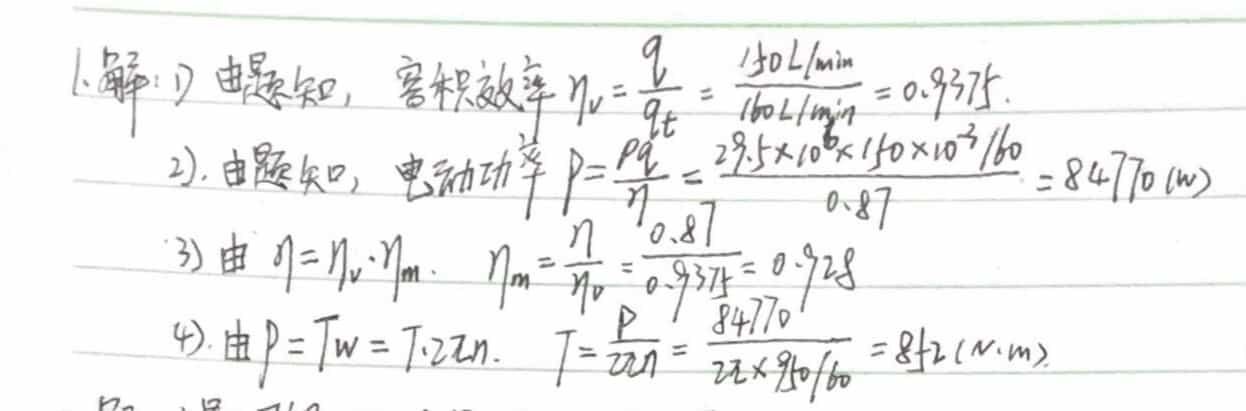 1.解:1) 由题知, 容积效率 ηv = q/qt = 150L/min / 160L/min = 0.9375.
2). 由题知, 电动功率 P = pq/η = 29.5×10⁶×150×10⁻³/60 / 0.87 = 84770(w)
3) 由 η = ηv·ηm. ηm = η/ηv = 0.87/0.9375 = 0.928
4). 由 P = Tw = T·2πn. T = P/2πn = 84770 / 2π×950/60 = 852(N·m).